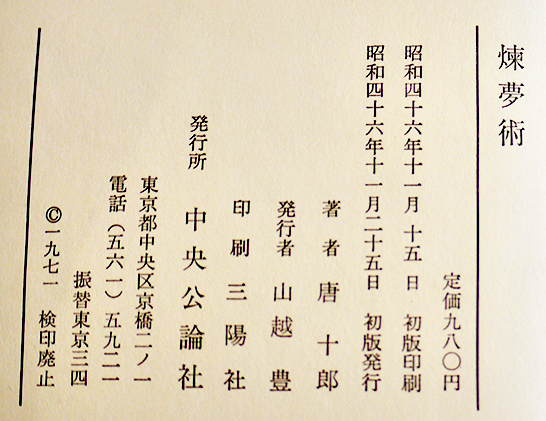 煉夢術
定価九八〇円
昭和四十六年十一月 十五 日 初版印刷
昭和四十六年十一月二十五日 初版発行
著者 唐十郎
発行者 山越豊
印刷 三陽社
発行所 中央公論社
東京都中央区京橋二ノ一
電話(五六一)五九二一
振替東京三四
©一九七一 検印廃止